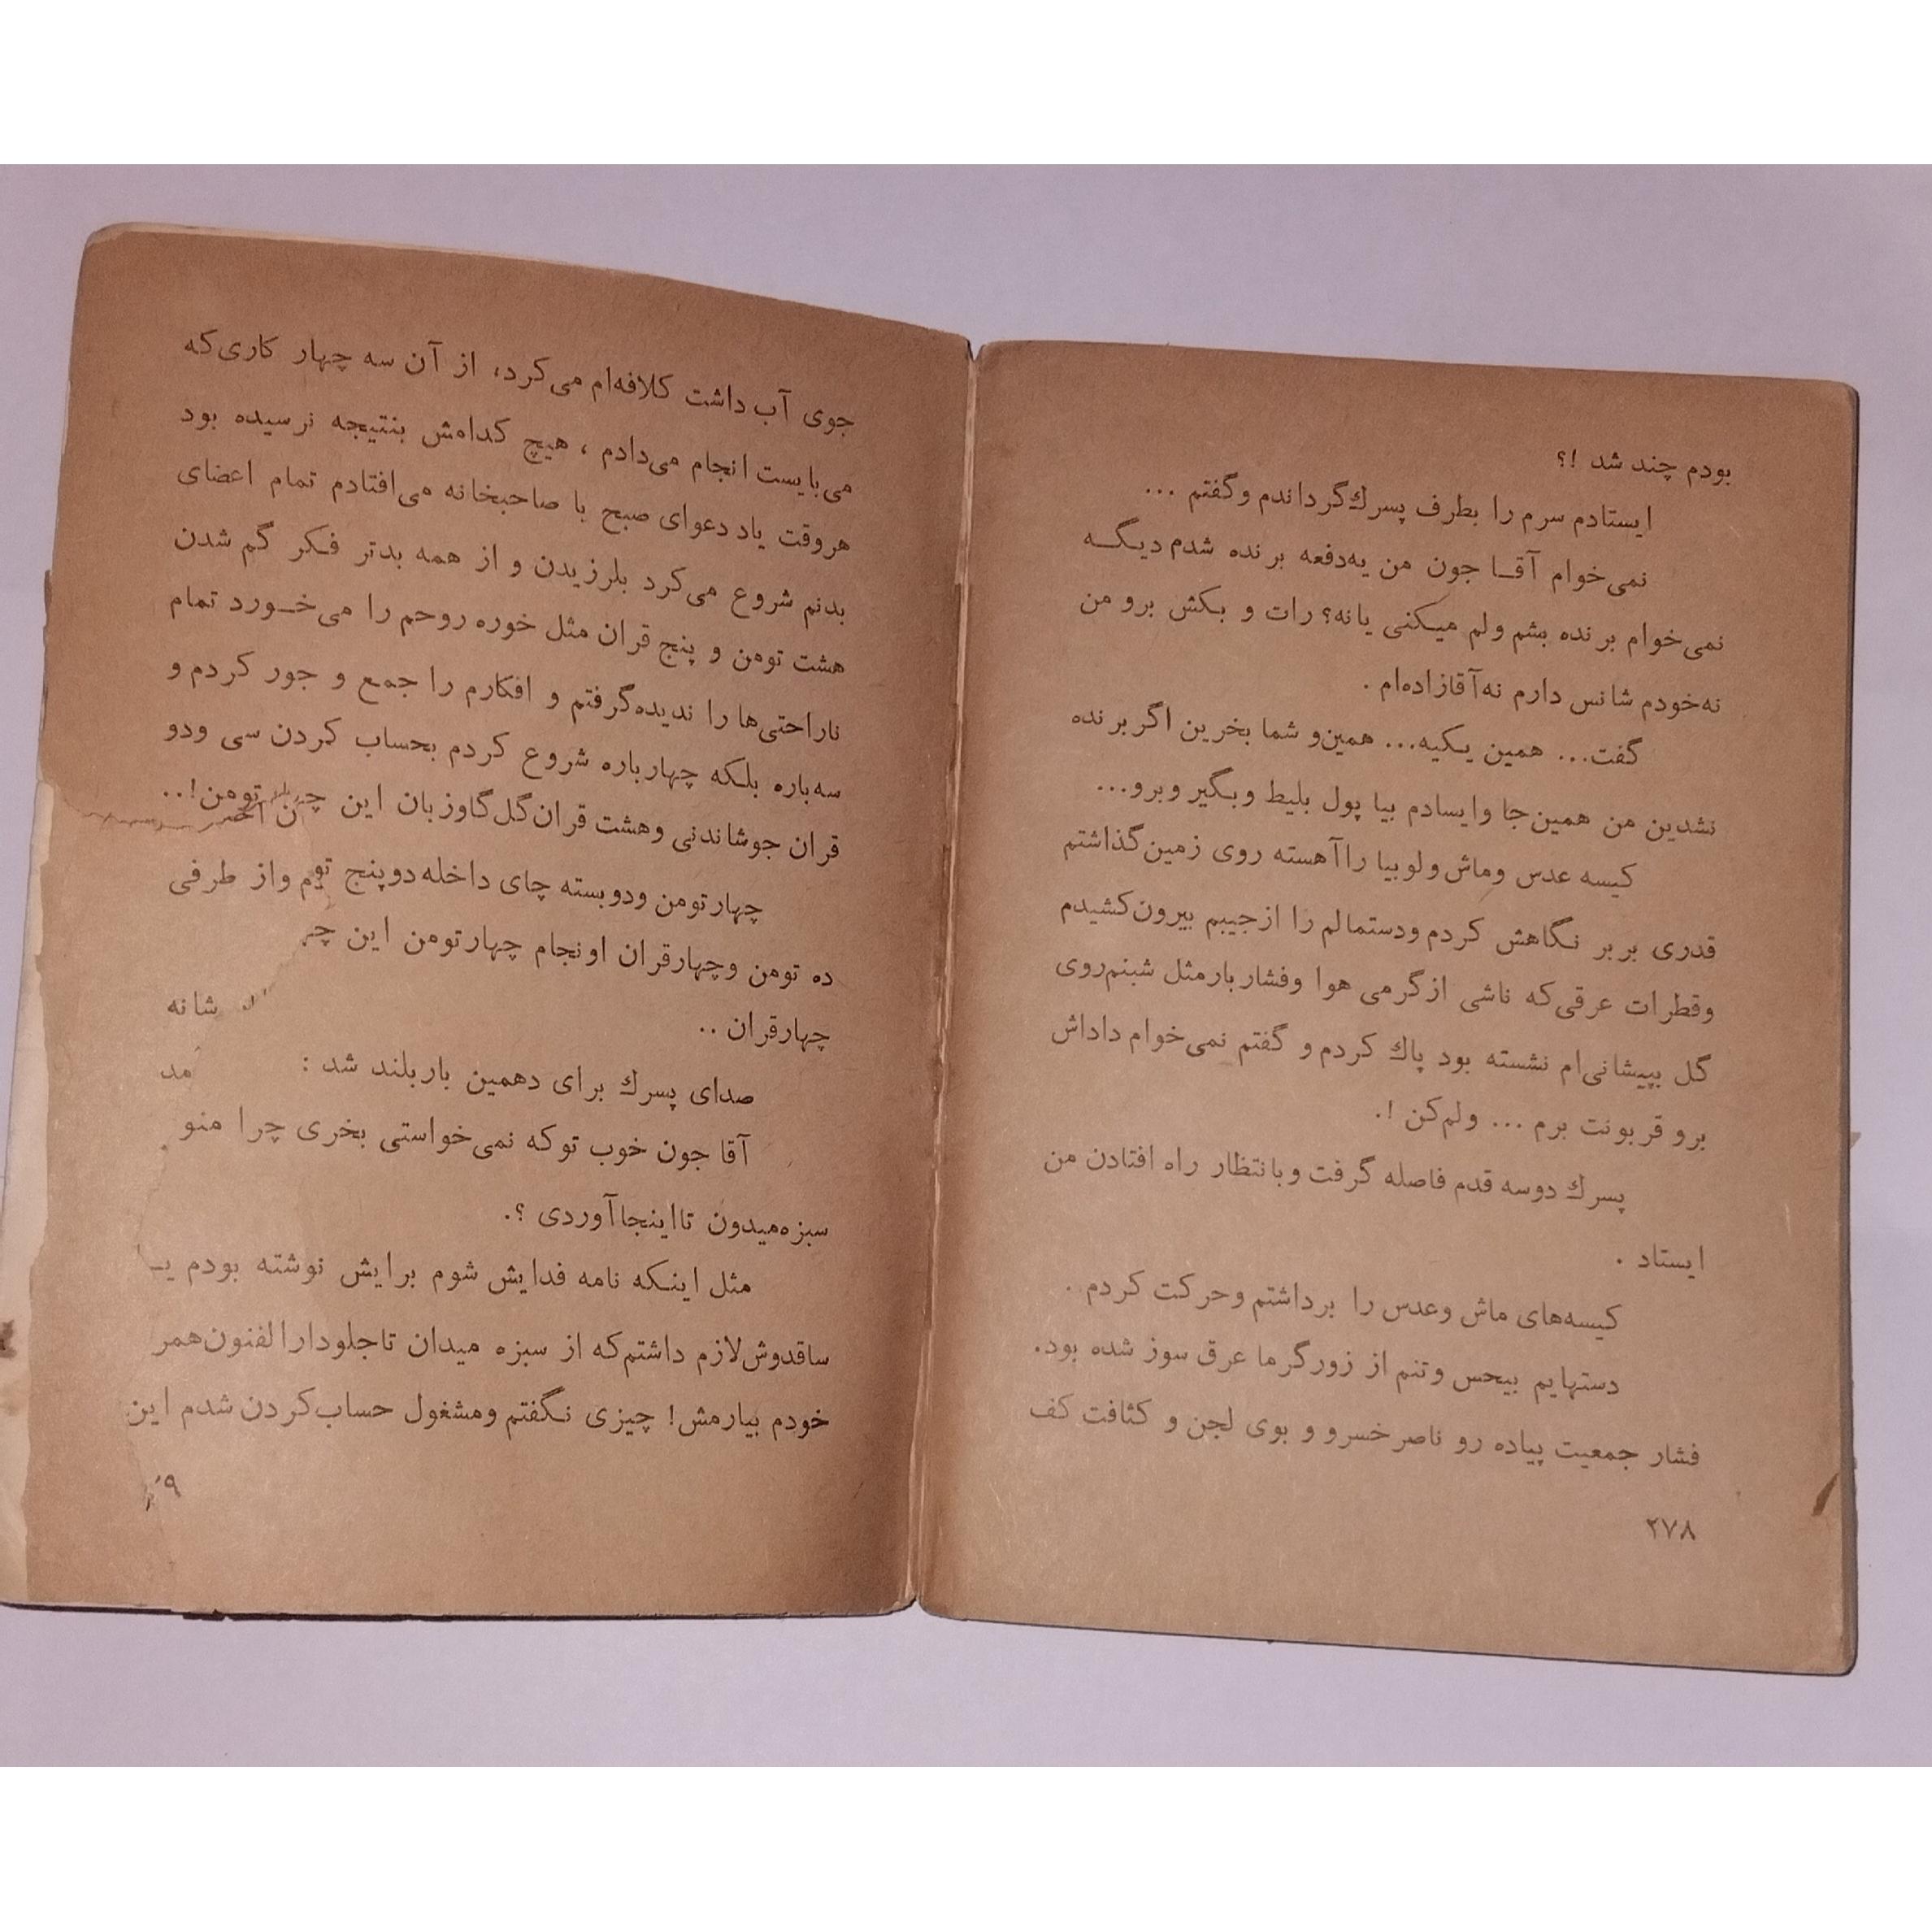 بودم چند شد !؟
ایستادم سرم را بطرف پسرك گرداندم و گفتم ...
نمی‌خوام آقا جون من یه‌دفعه برنده شدم دیگه
نمی‌خوام برنده بشم ولم میکنی یا نه؟ رات و بکش برو من
نه‌خودم شانس دارم نه‌آقازاده‌ام .
گفت... همین یکیه... همین‌و شما بخرین اگر برنده
نشدین من همین‌جا وایسادم بیا پول بلیط و بگیر و برو...
کیسه عدس و ماش و لوبیا را آهسته روی زمین گذاشتم
قدری بر بر نگاهش کردم و دستمالم را از جیبم بیرون کشیدم
و قطرات عرقی که ناشی از گرمی هوا و فشار بار مثل شبنم روی
گل بپیشانی‌ام نشسته بود پاك کردم و گفتم نمی‌خوام داداش
برو قربونت برم ... ولم‌کن !.
پسرك دوسه قدم فاصله گرفت و بانتظار راه افتادن من
ایستاد .
کیسه‌های ماش و عدس را برداشتم و حرکت کردم .
دستهایم بیحس و تنم از زور گرما عرق سوز شده بود.
فشار جمعیت پیاده رو ناصرخسرو و بوی لجن و کثافت کف
۲۷۸
جوی آب داشت کلافه‌ام می‌کرد، از آن سه چهار کاری‌که
می‌بایست انجام می‌دادم ، هیچ کدامش بنتیجه نرسیده بود
هروقت یاد دعوای صبح با صاحبخانه می‌افتادم تمام اعضای
بدنم شروع می‌کرد بلرزیدن و از همه بدتر فکر گم شدن
هشت تومن و پنج قران مثل خوره روحم را می‌خورد تمام
ناراحتی‌ها را ندیده‌گرفتم و افکارم را جمع و جور کردم و
سه‌باره بلکه چهارباره شروع کردم بحساب کردن سی ودو
قران جوشاندنی و هشت قران گل گاوزبان این تومن!..
چهارتومن و دوبسته چای داخله دوپنج واز طرفی
ده تومن و چهارقران اونجام چهارتومن این
چهارقران .. شانه
صدای پسرك برای دهمین بار بلند شد :
آقا جون خوب توکه نمی‌خواستی بخری چرا منو
سبزه‌میدون تااینجا آوردی ؟.
مثل اینکه نامه فدایش شوم برایش نوشته بودم
ساقدوش لازم داشتم که از سبزه میدان تاجلودارالفنون
خودم بیارمش! چیزی نگفتم و مشغول حساب کردن شدم این